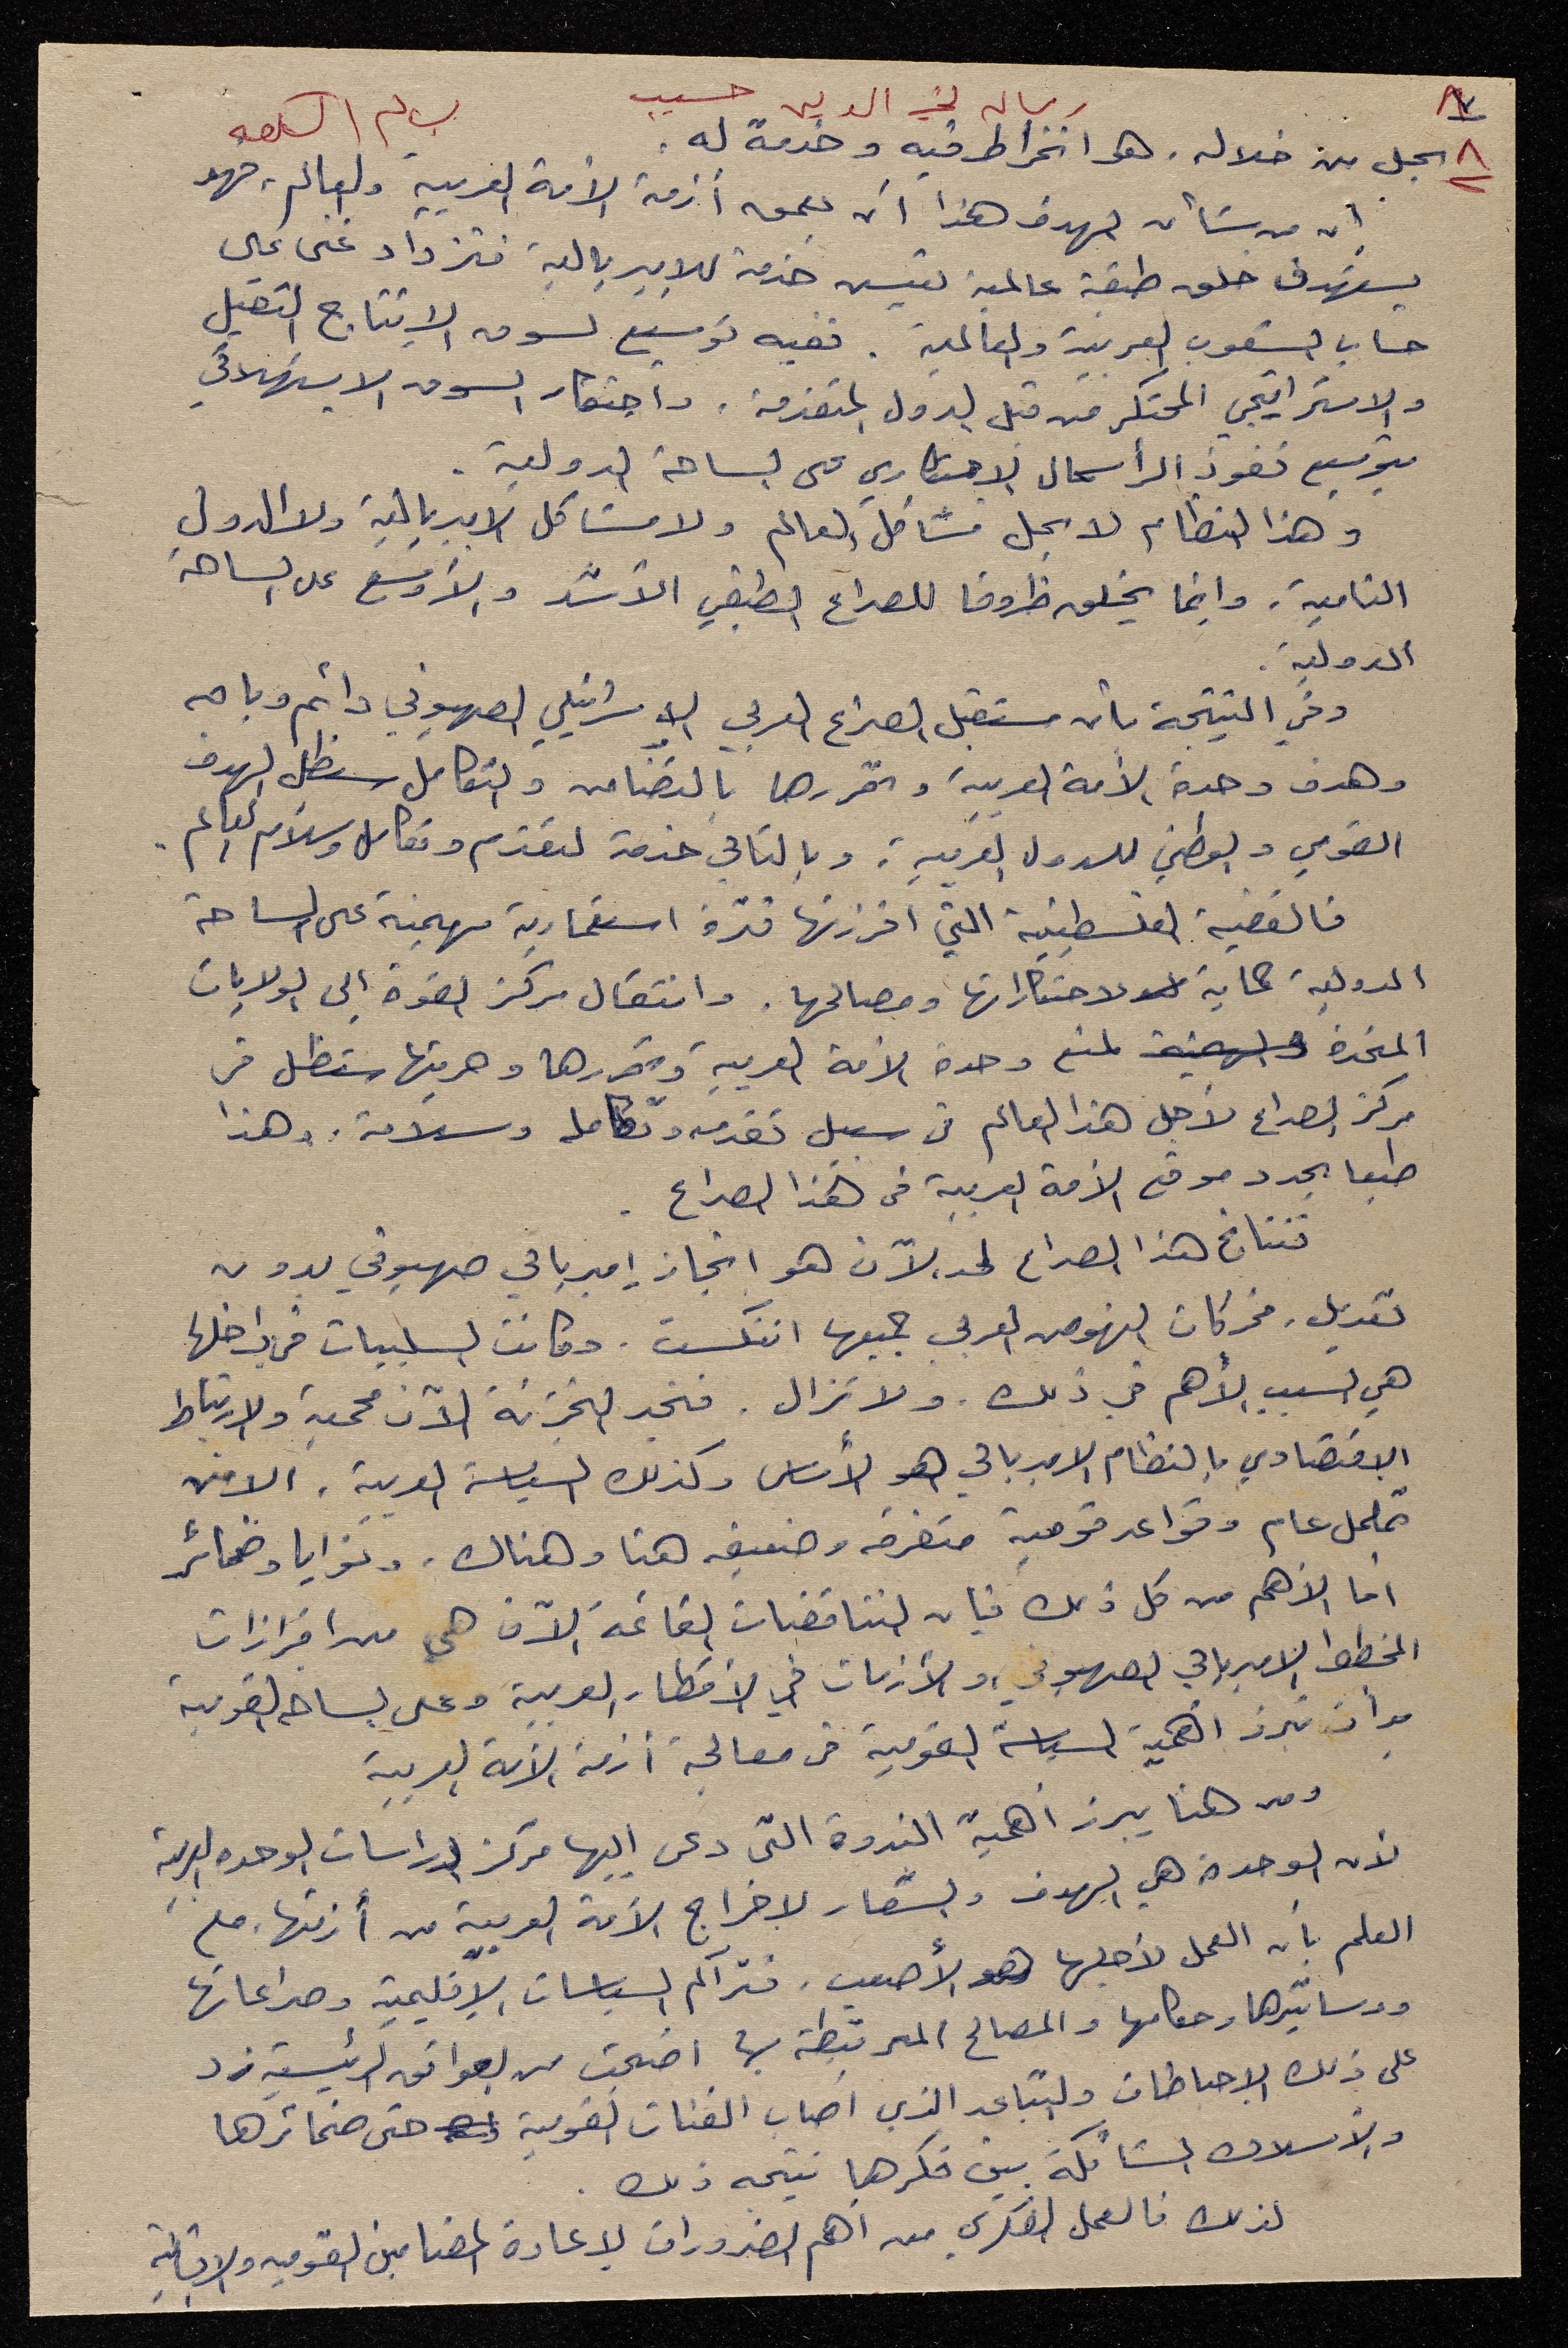 رسالة خير الدين حسيب
٨
يجعل من خلاله. هو انخراط فيه وخدمة له.
إن من شأن الهدف هذا أن يعمق أزمة الأمة العربية والعالم، فهو
يستهدف خلق طبقة عالمية تعيش خدمة للإمبريالية فتزداد غنى على
حساب الشعوب العربية والعالمية. ففيه توسيع لسوق الإنتاج الثقيل
والاستراتيجي المحتكر من قبل الدول المتقدمة، واحتكار السوق الاستهلاكي
بتوسيع نفوذ الرأسمال الاحتكاري على الساحة الدولية.
وهذا النظام لا يحل مشاكل العالم ولا مشاكل الإمبريالية ولا الدول
النامية، وإنما يخلق ظروفا للصراع الطبقي الأشد والأوسع على الساحة
الدولية.
وفي النتيجة بأن مستقبل الصراع العربي الإسرائيلي الصهيوني دائم وباق
وهدف وحدة الأمة العربية وتحررها بالتضامن والتكامل ستظل الهدف
القومي والوطني للدول العربية، وبالتالي خدمة لتقدم وتكامل وسلام العالم.
فالقضية الفلسطينية التي أفرزتها فترة استعمارية مهيمنة على الساحة
الدولية حماية لاحتكاراتها ومصالحها، وانتقال مركز القوة إلى الولايات
المتحدة لمنع وحدة الأمة العربية وتحررها وحريتها ستظل في
مركز الصراع لأجل هذا العالم في سبيل تقدمه وتكامله وسلامة، وهذا
طبعا يحدد موقع الأمة العربية في هذا الصراع.
فنتائج هذا الصراع لحد الآن هو إنجاز إمبريالي صهيوني بدون
تعديل، فحركات النهوض العربي جميعها انتكست، وكانت السلبيات في داخلها
هي السبب الأهم في ذلك، ولا تزال. فنجد التجزئة الآن محمية والارتباط
الاقتصادي بالنظام الإمبريالي هو الأساس وكذلك السياسة العربية، إلا من
تململ عام وقواعد قومية متفرقة وضعيفة هنا وهناك، ونوايا وضمائر
أما الأهم من كل ذلك فإن التناقضات القائمة الآن هي من افرازات
المخطط الإمبريالي الصهيوني، والأزمات في الأقطار العربية وعلى الساحة القومية
بدأت تبرز أهمية السياسة القومية في معالجة أزمة الأمة العربية
ومن هنا يبرز أهمية الندوة التي دعى إليها مركز دراسات الوحدة العربية
لأن الوحدة هي الهدف والشعار لإخراج الأمة العربية من أزمتها، مع
العلم بأن العمل لأجلها هو الأصعب، فتراكم السياسات الإقليمية وصراعاتها
ودساتيرها وحكامها والمصالح المرتبطة بها أضحت من العوائق الرئيسية زد
على ذلك الإحباطات والتباعد الذي أصاب الفئات القومية حتى ضمائرها
والأسلاك الشائكة بين فكرها نتيجة ذلك.
لذلك فالعمل الفكري من أهم الضرورات لإعادة المضامين القومية والإنسانية